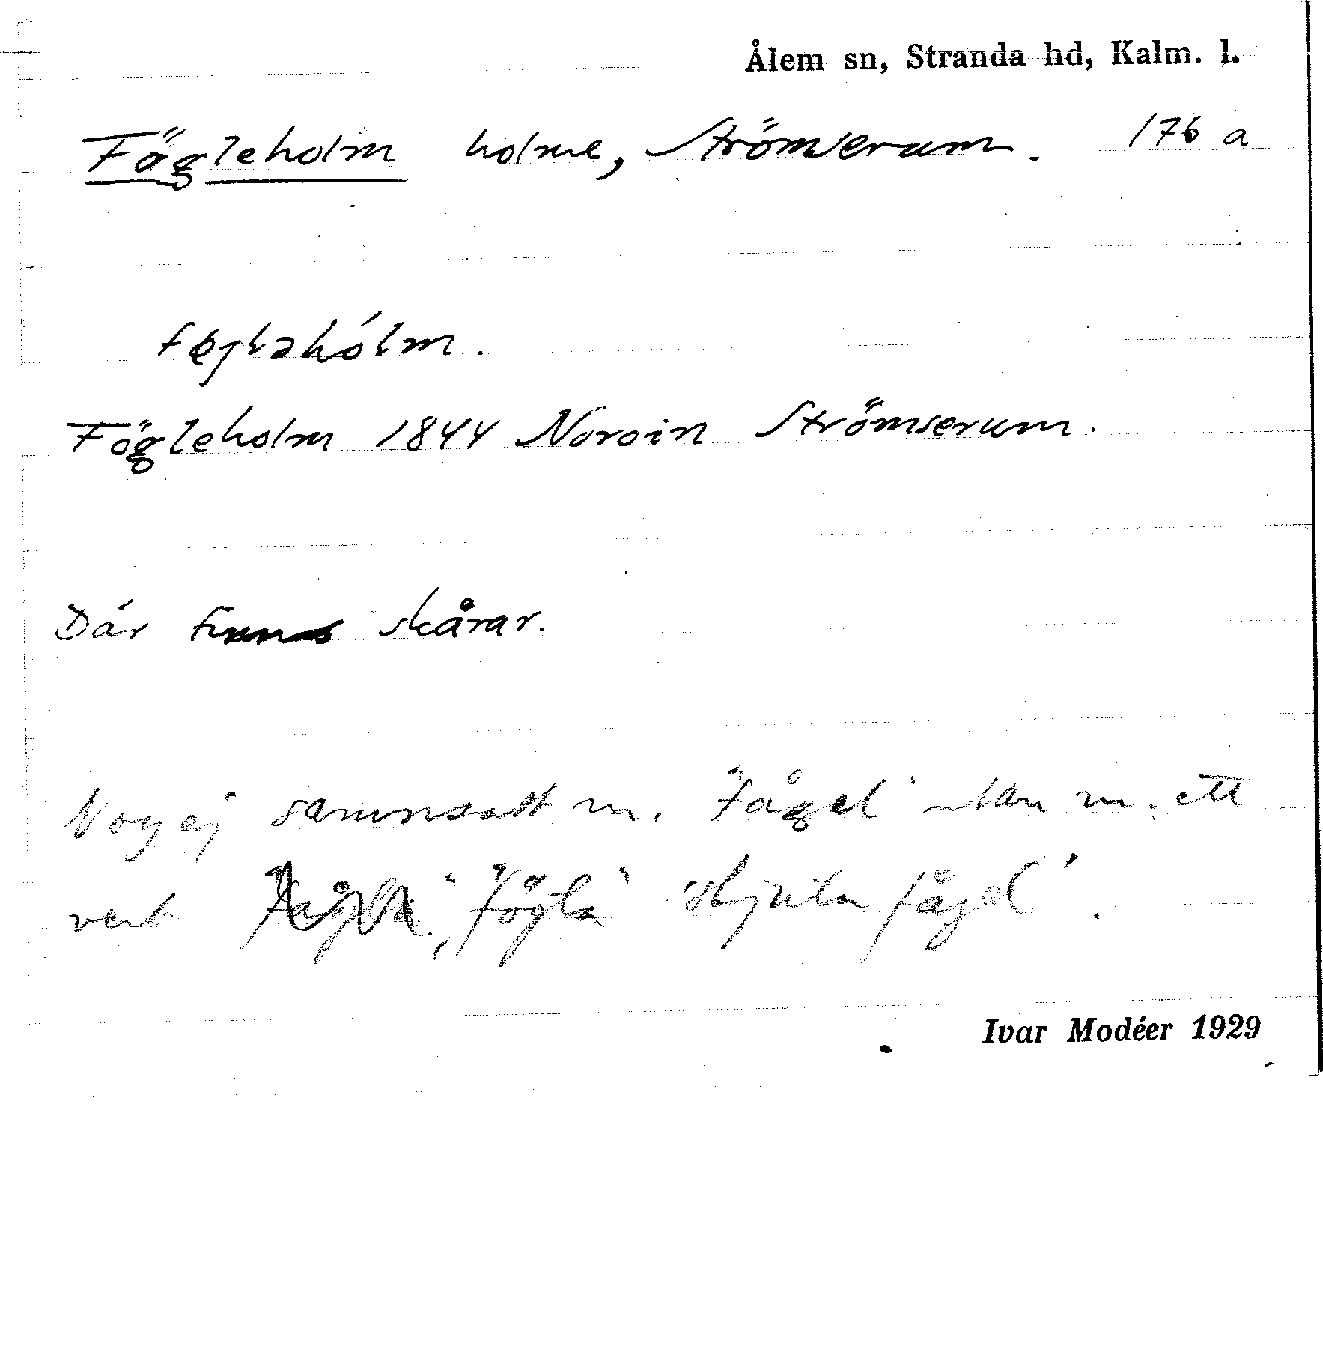 Ålem sn, Stranda hd, Kalm. l.
Fögleholm holme, Strömserum. 176 a
føglahólm.
Fögleholm 1844 Noroin Strömserum.
Där finnas skårar.
Nog ej sammansatt m. "Fågel" utan m. ett
verb "Fögla" 'skjuta fågel'.
Ivar Modéer 1929